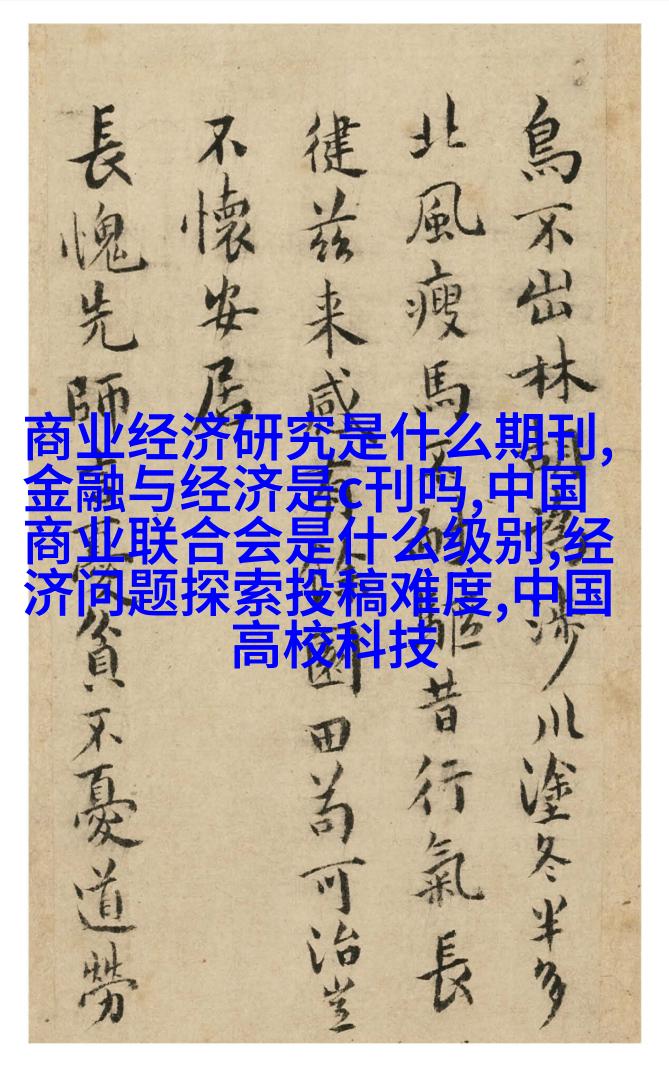 鳥不出林涉川塗冬半多
北風瘦馬不驅昔行氣長
健茲来感園田苟可治豈
不懷安居
長愧先師憂貧不憂道勞
商业经济研究是什么期刊,
金融与经济是c刊吗,中国
商业联合会是什么级别,经
济问题探索投稿难度,中国
高校科技